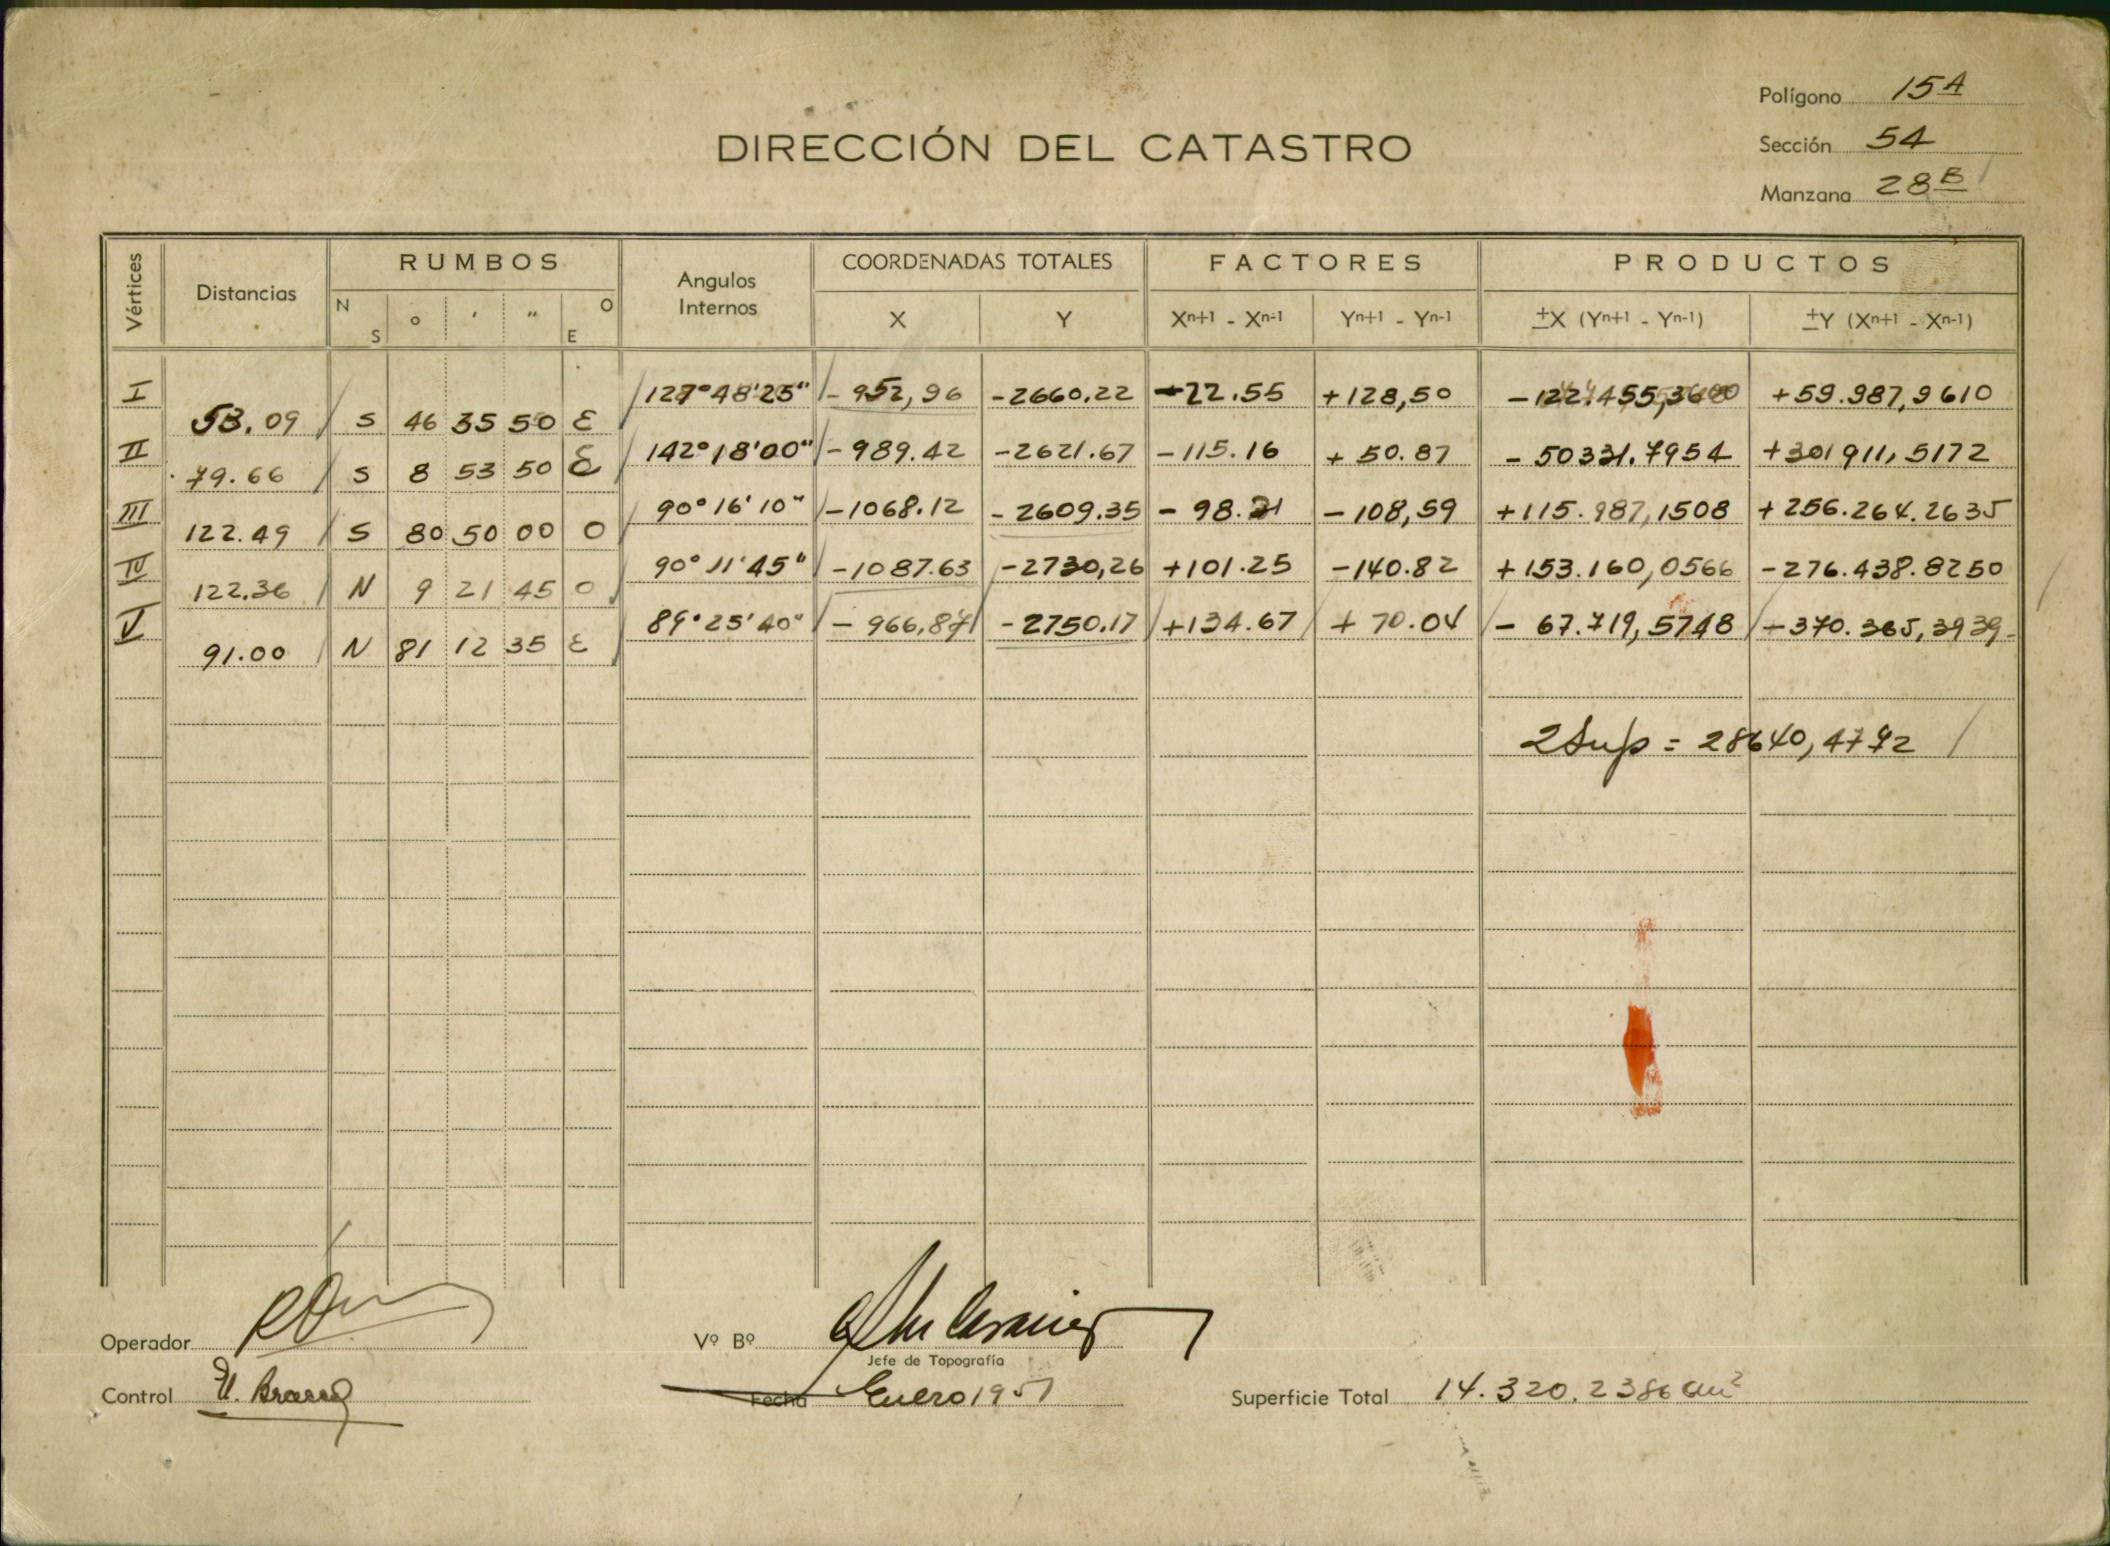 Polígono 15A
DIRECCIÓN DEL CATASTRO
Sección 54
Manzana 28B
Vértices Distancias RUMBOS Angulos Internos COORDENADAS TOTALES FACTORES PRODUCTOS
N S ° ' " O E X Y Xn+1 - Xn-1 Yn+1 - Yn-1 ±X (Yn+1 - Yn-1) ±Y (Xn+1 - Xn-1)
I 127°48'25" -952,96 -2660.22 -22.55 +128,50 -122.455,3600 +59.987,9610
53.09 S 46 35 50 E
II 142°18'00" -989.42 -2621.67 -115.16 +50.87 -50331.7954 +301911,5172
79.66 S 8 53 50 E
III 90°16'10" -1068.12 -2609.35 -98.21 -108,59 +115.987,1508 +256.264.2635
122.49 S 80 50 00 O
IV 90°11'45" -1087.63 -2730,26 +101.25 -140.82 +153.160,0566 -276.438.8250
122.36 N 9 21 45 O
V 89°25'40" -966,87 -2750.17 +134.67 +70.04 -67.719,5748 -370.365,3939
91.00 N 81 12 35 E
2Sup = 28640,4772
Operador
Vº Bº
Jefe de Topografía
Control
Fecha Enero 1951
Superficie Total 14.320.2386 m²